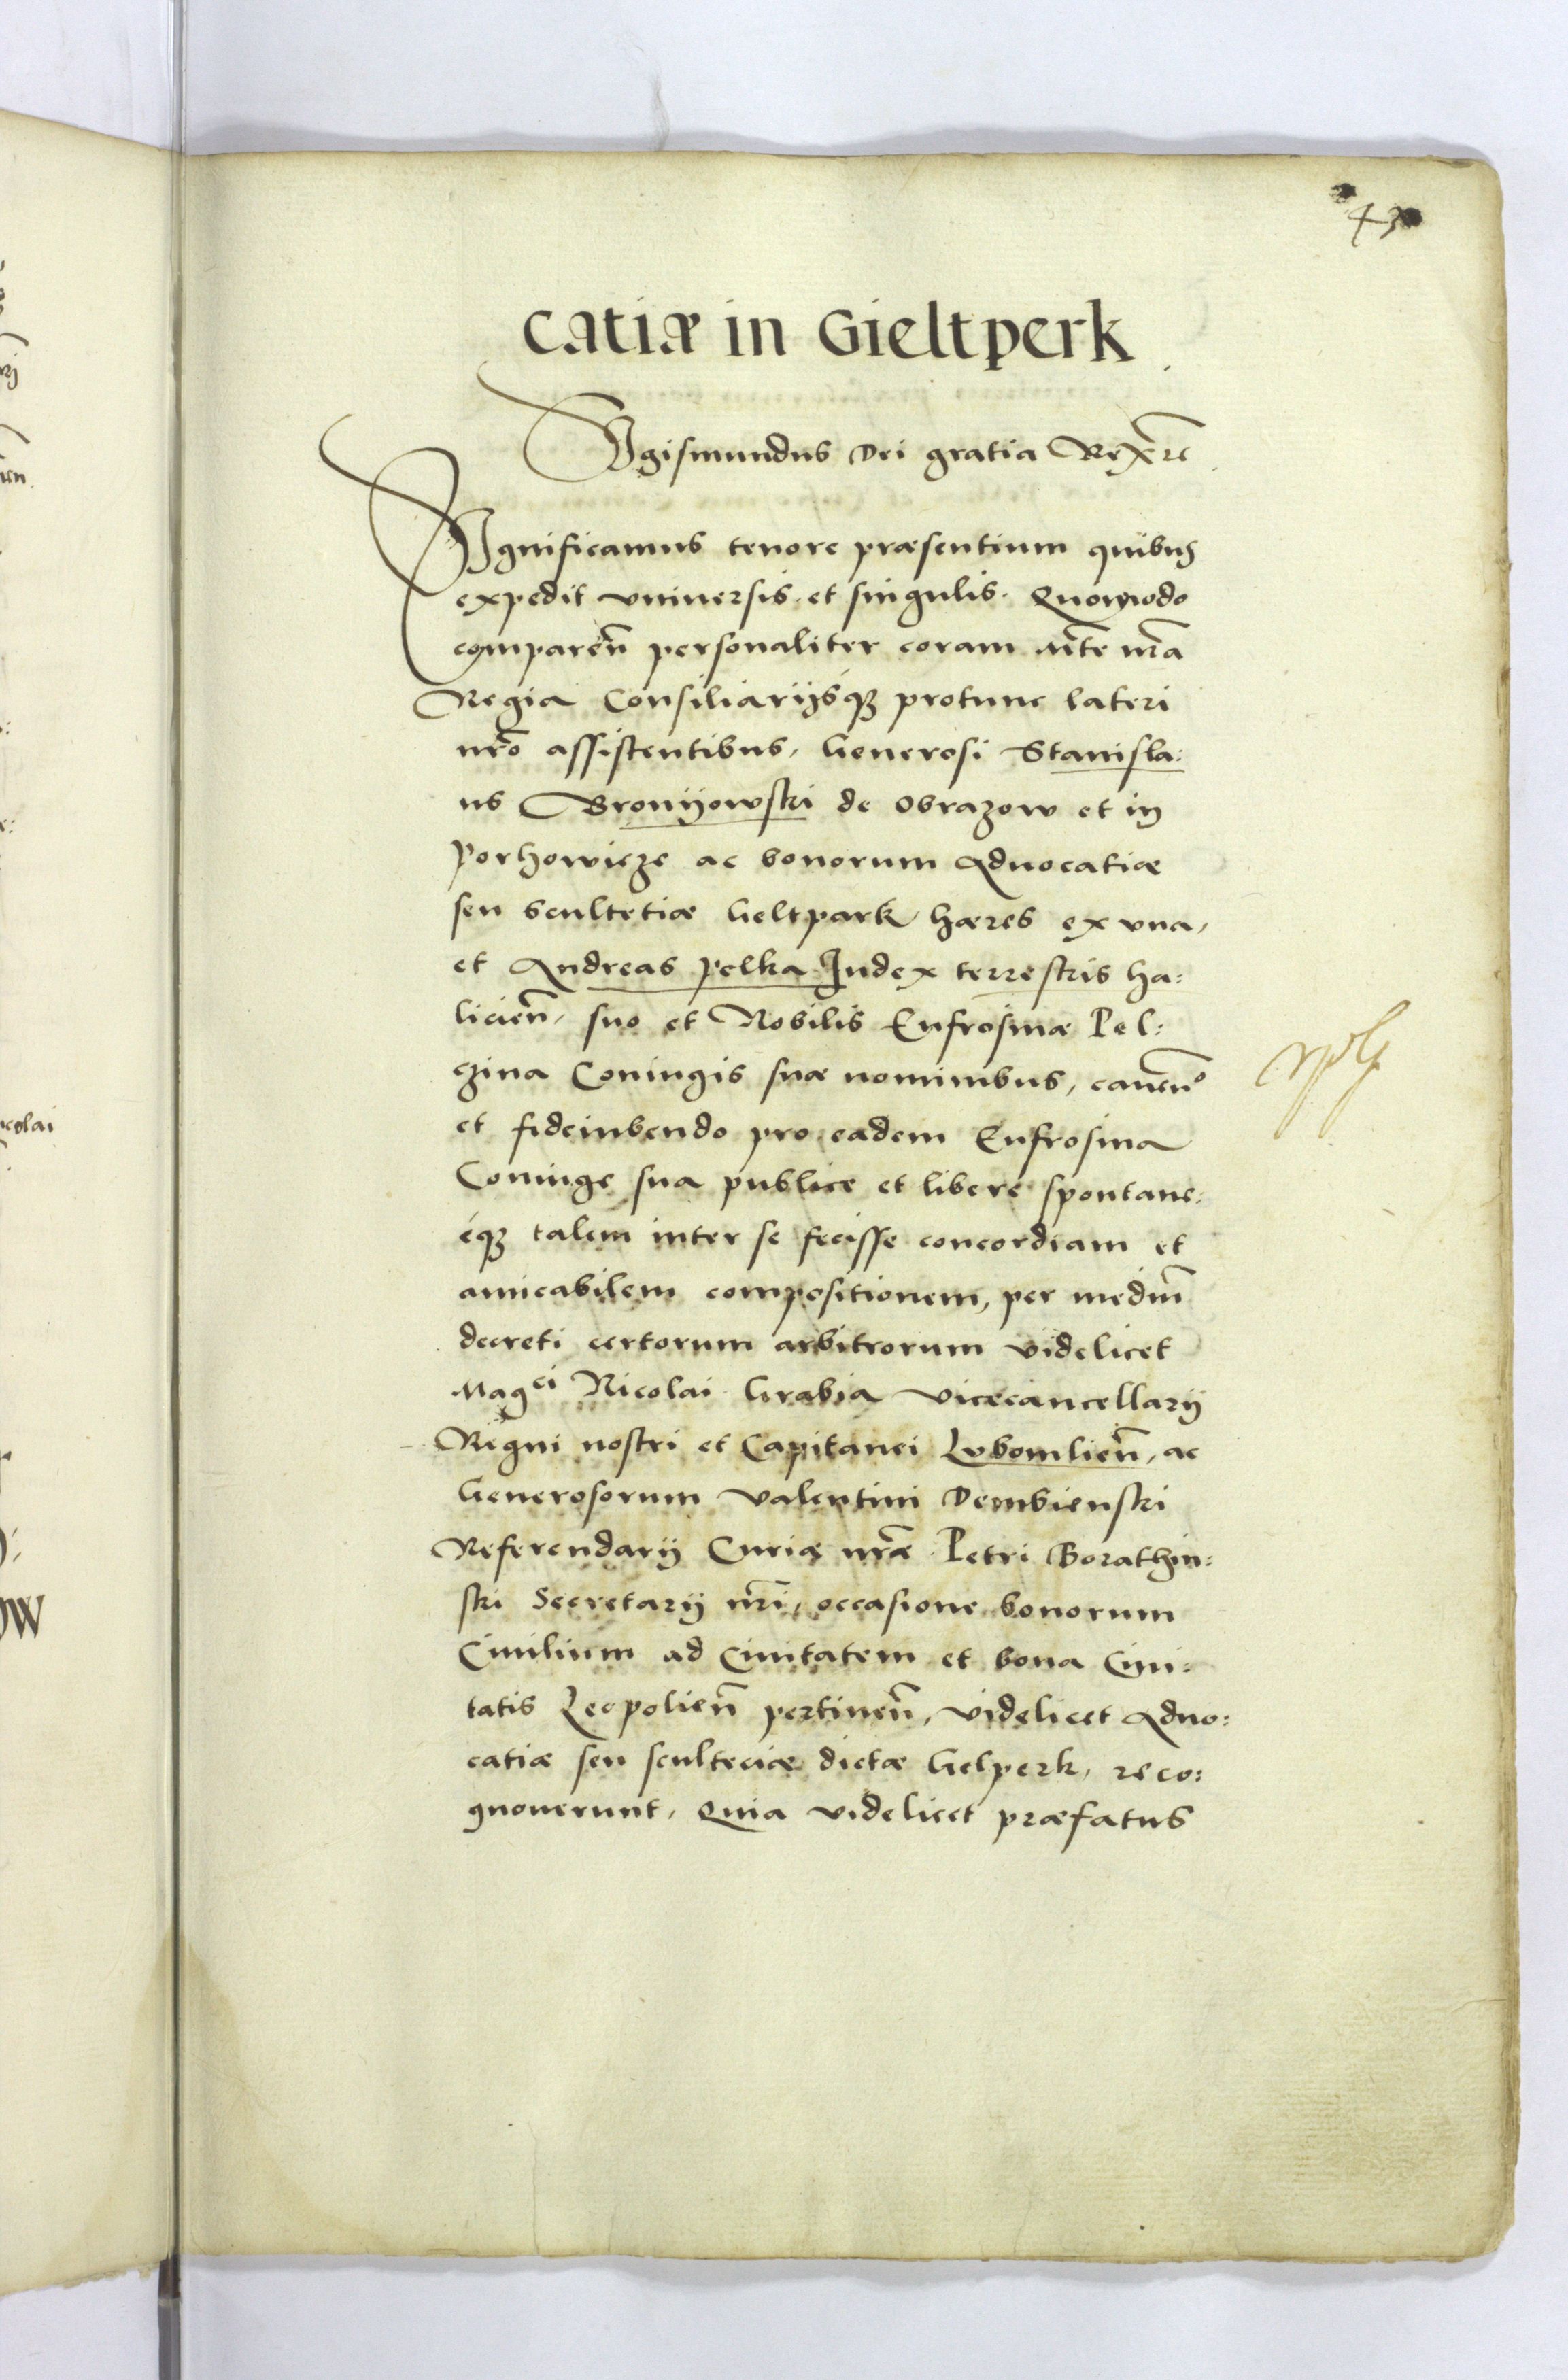 43
catiæ in Gieltperk
Sigismundus Dei gratia Rex etc
Significamus tenore præsentium quibus
expedit vniuersis et singulis. Quomodo
comparen̄ personaliter coram Mte nr̄a
Regia Consiliarijsqꝫ protunc lateri
nr̄o assistentibus, Generosi Stanisla:
us Bronijowski de Obrazow et in
Porhowicze ac bonorum Aduocatiæ
seu Scultetiæ Geltpark hæres ex vna,
et Andreas Pelka Iudex terrestris Ha:
licien̄, suo et Nobilis Eufrosinæ Pel:
czina Coniugis suæ nominibus, cauendo
et fideiubendo pro eadem Eufrosina
Coniuge sua publice et libere spontane:
eqꝫ talem inter se fecisse concordiam et
amicabilem compositionem, per mediū
decreti certorum arbitrorum videlicet
Magci Nicolai Grabia Vicecancellarij
Regni nostri et Capitanei Lubomlien̄, ac
Generosorum Valentini Dembienski
Referendarij Curiæ nr̄æ Petri Borathin:
ski Secretarij nr̄i, occasione bonorum
Ciuilium ad Ciuitatem et bona Ciui:
tatis Leopolien̄ pertinen̄, videlicet Aduo:
catiæ seu sculteciæ dictæ Gelperk, reco:
gnouerunt, Quia videlicet præfatus